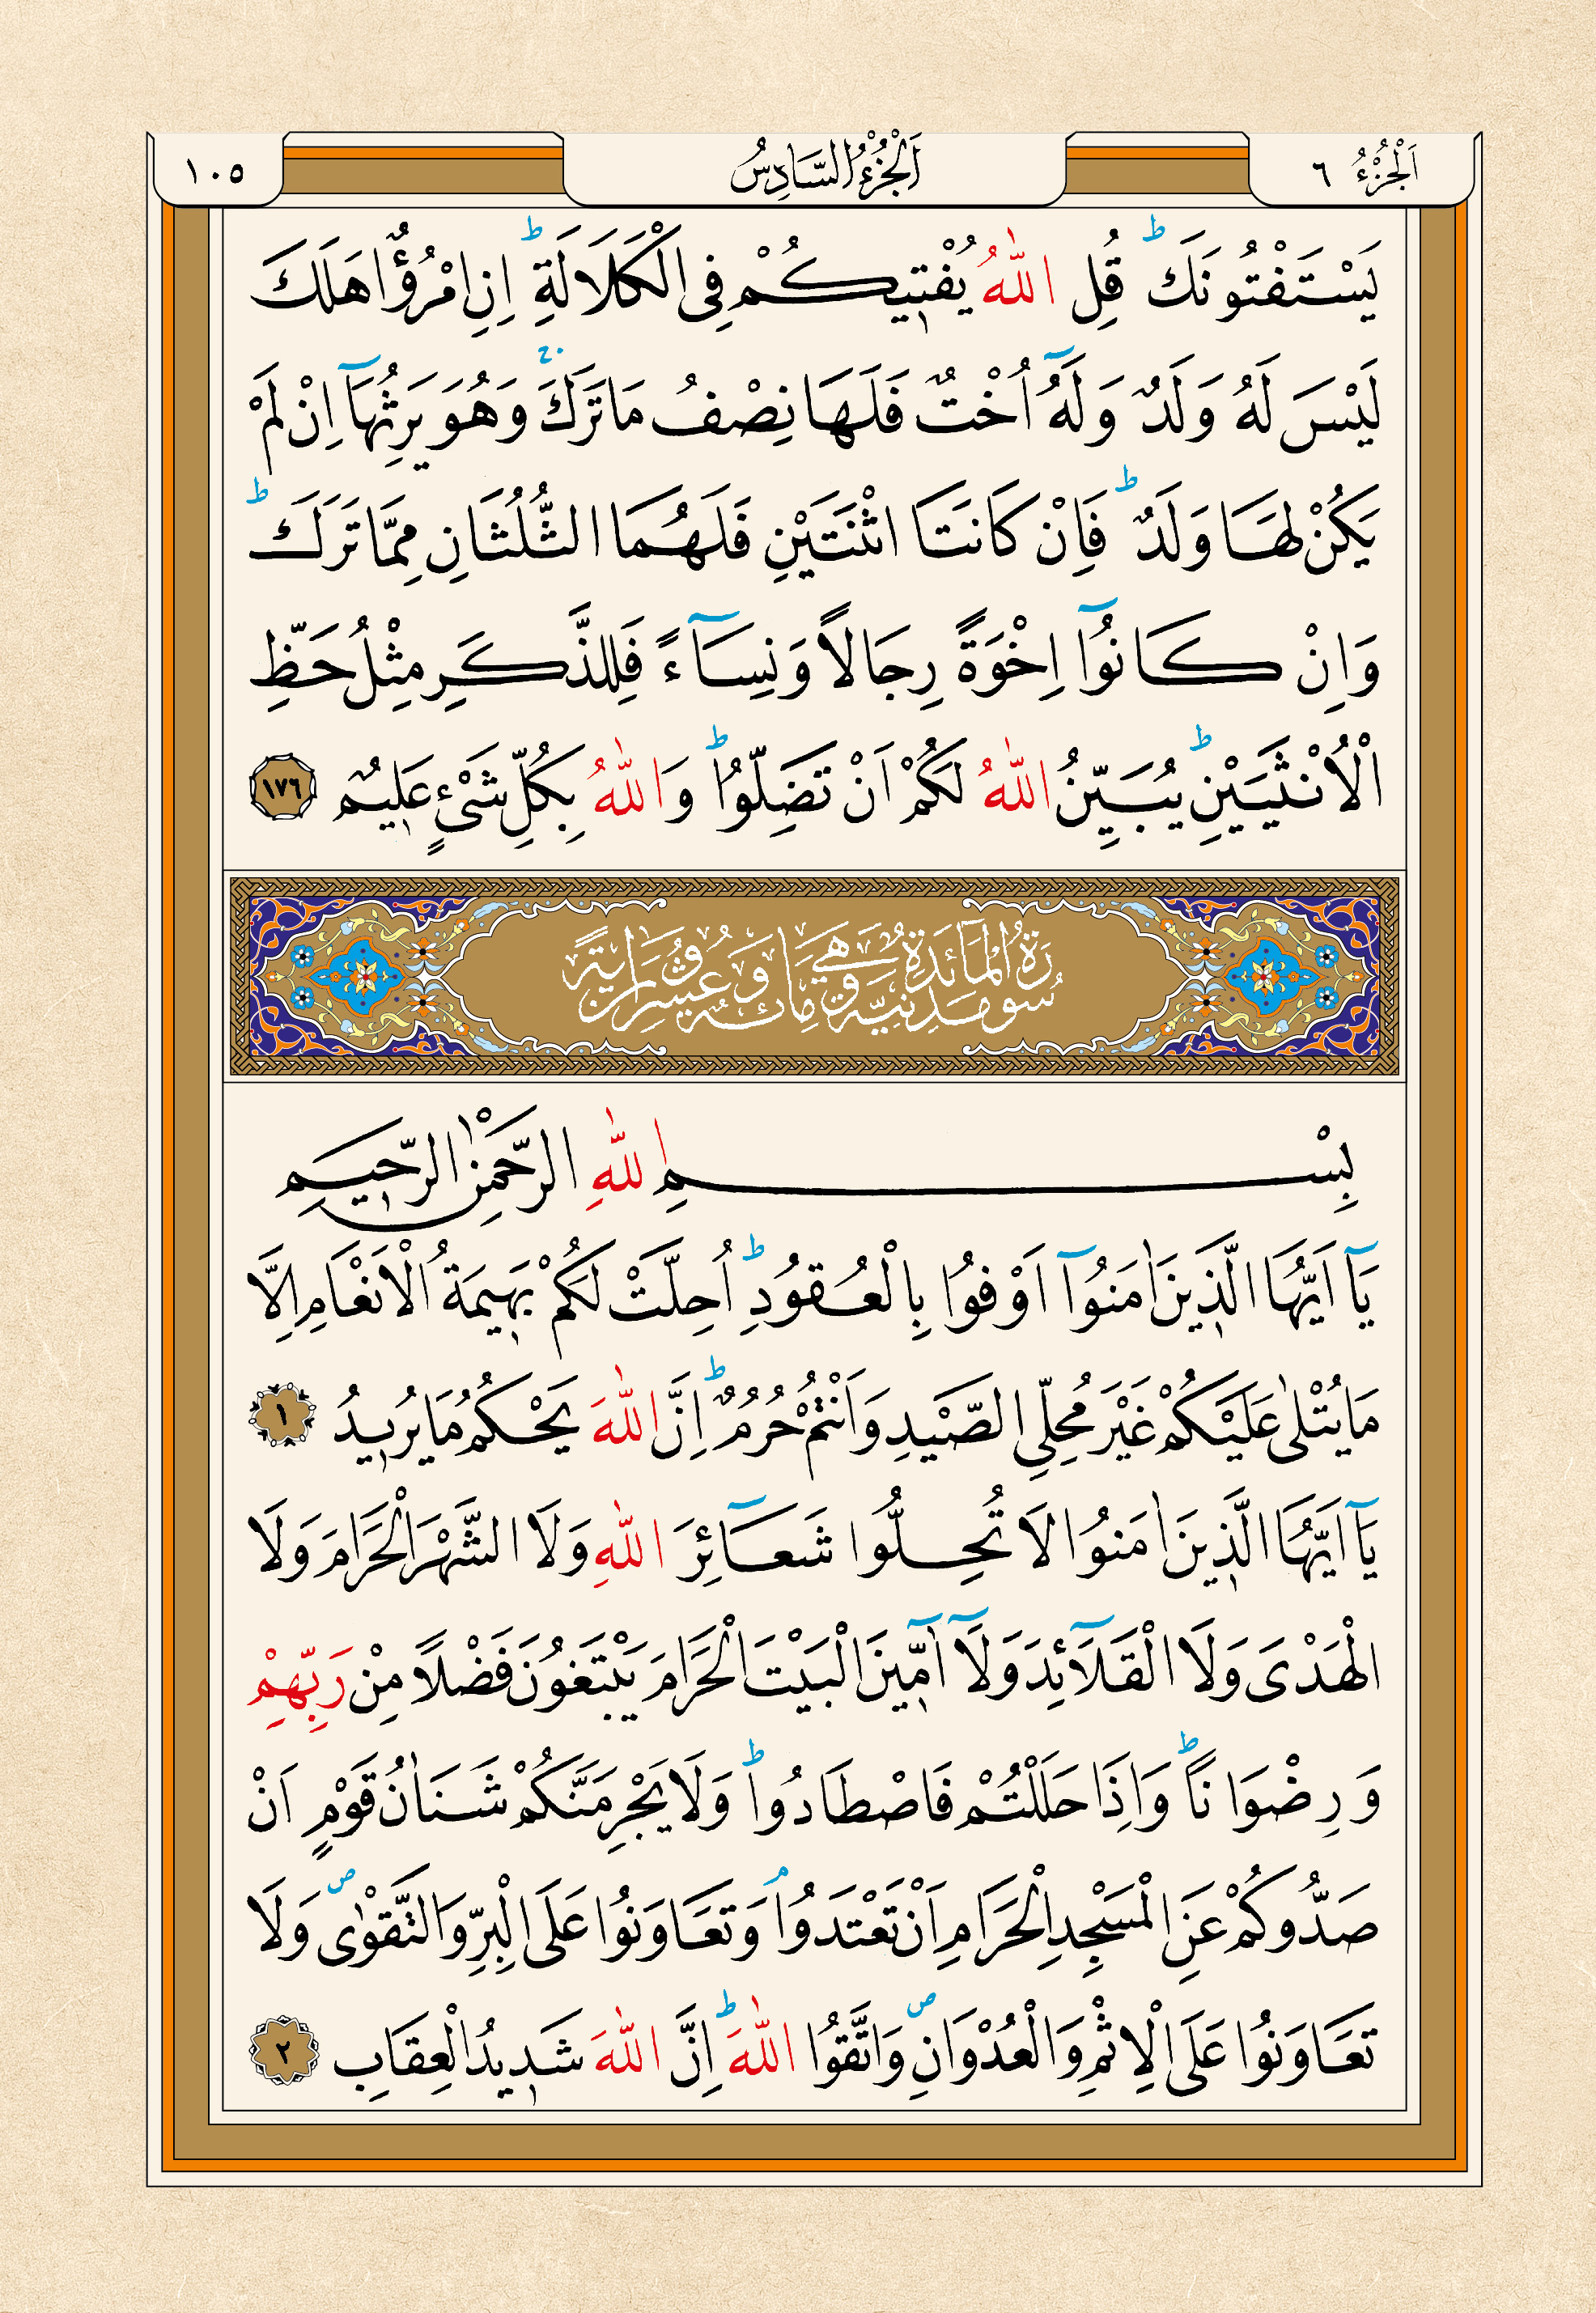 اَلْجُزْءُ ٦
اَلْجُزْءُ السَّادِسُ
١٠٥
يَسْتَفْتُونَكَ ط قُلِ اللّٰهُ يُفْتٖيكُمْ فِى الْكَلَالَةِ ط اِنِ امْرُؤٌا هَلَكَ
لَيْسَ لَهُ وَلَدٌ وَلَهُٓ اُخْتٌ فَلَهَا نِصْفُ مَا تَرَكَ ۚ وَهُوَ يَرِثُهَٓا اِنْ لَمْ
يَكُنْ لَهَا وَلَدٌ ط فَاِنْ كَانَتَا اثْنَتَيْنِ فَلَهُمَا الثُّلُثَانِ مِمَّا تَرَكَ ط
وَاِنْ كَانُٓوا اِخْوَةً رِجَالًا وَنِسَٓاءً فَلِلذَّكَرِ مِثْلُ حَظِّ
الْاُنْثَيَيْنِ ط يُبَيِّنُ اللّٰهُ لَكُمْ اَنْ تَضِلُّوا ط وَاللّٰهُ بِكُلِّ شَىْءٍ عَلٖيمٌ ١٧٦
سُورَةُ الْمَائِدَةِ مَدَنِيَّةٌ وَهِيَ مِائَةٌ وَعِشْرُونَ اٰيَةً
بِسْمِ اللّٰهِ الرَّحْمٰنِ الرَّحٖيمِ
يَٓا اَيُّهَا الَّذٖينَ اٰمَنُٓوا اَوْفُوا بِالْعُقُودِ ط اُحِلَّتْ لَكُمْ بَهٖيمَةُ الْاَنْعَامِ اِلَّا
مَا يُتْلٰى عَلَيْكُمْ غَيْرَ مُحِلِّى الصَّيْدِ وَاَنْتُمْ حُرُمٌ ط اِنَّ اللّٰهَ يَحْكُمُ مَا يُرٖيدُ ١
يَٓا اَيُّهَا الَّذٖينَ اٰمَنُوا لَا تُحِلُّوا شَعَٓائِرَ اللّٰهِ وَلَا الشَّهْرَ الْحَرَامَ وَلَا
الْهَدْىَ وَلَا الْقَلَٓائِدَ وَلَٓا اٰمّٖٓينَ الْبَيْتَ الْحَرَامَ يَبْتَغُونَ فَضْلًا مِنْ رَبِّهِمْ
وَرِضْوَانًا ط وَاِذَا حَلَلْتُمْ فَاصْطَادُوا ط وَلَا يَجْرِمَنَّكُمْ شَنَاٰنُ قَوْمٍ اَنْ
صَدُّوكُمْ عَنِ الْمَسْجِدِ الْحَرَامِ اَنْ تَعْتَدُوا ۘ وَتَعَاوَنُوا عَلَى الْبِرِّ وَالتَّقْوٰى ص وَلَا
تَعَاوَنُوا عَلَى الْاِثْمِ وَالْعُدْوَانِ ص وَاتَّقُوا اللّٰهَ ط اِنَّ اللّٰهَ شَدٖيدُ الْعِقَابِ ٢